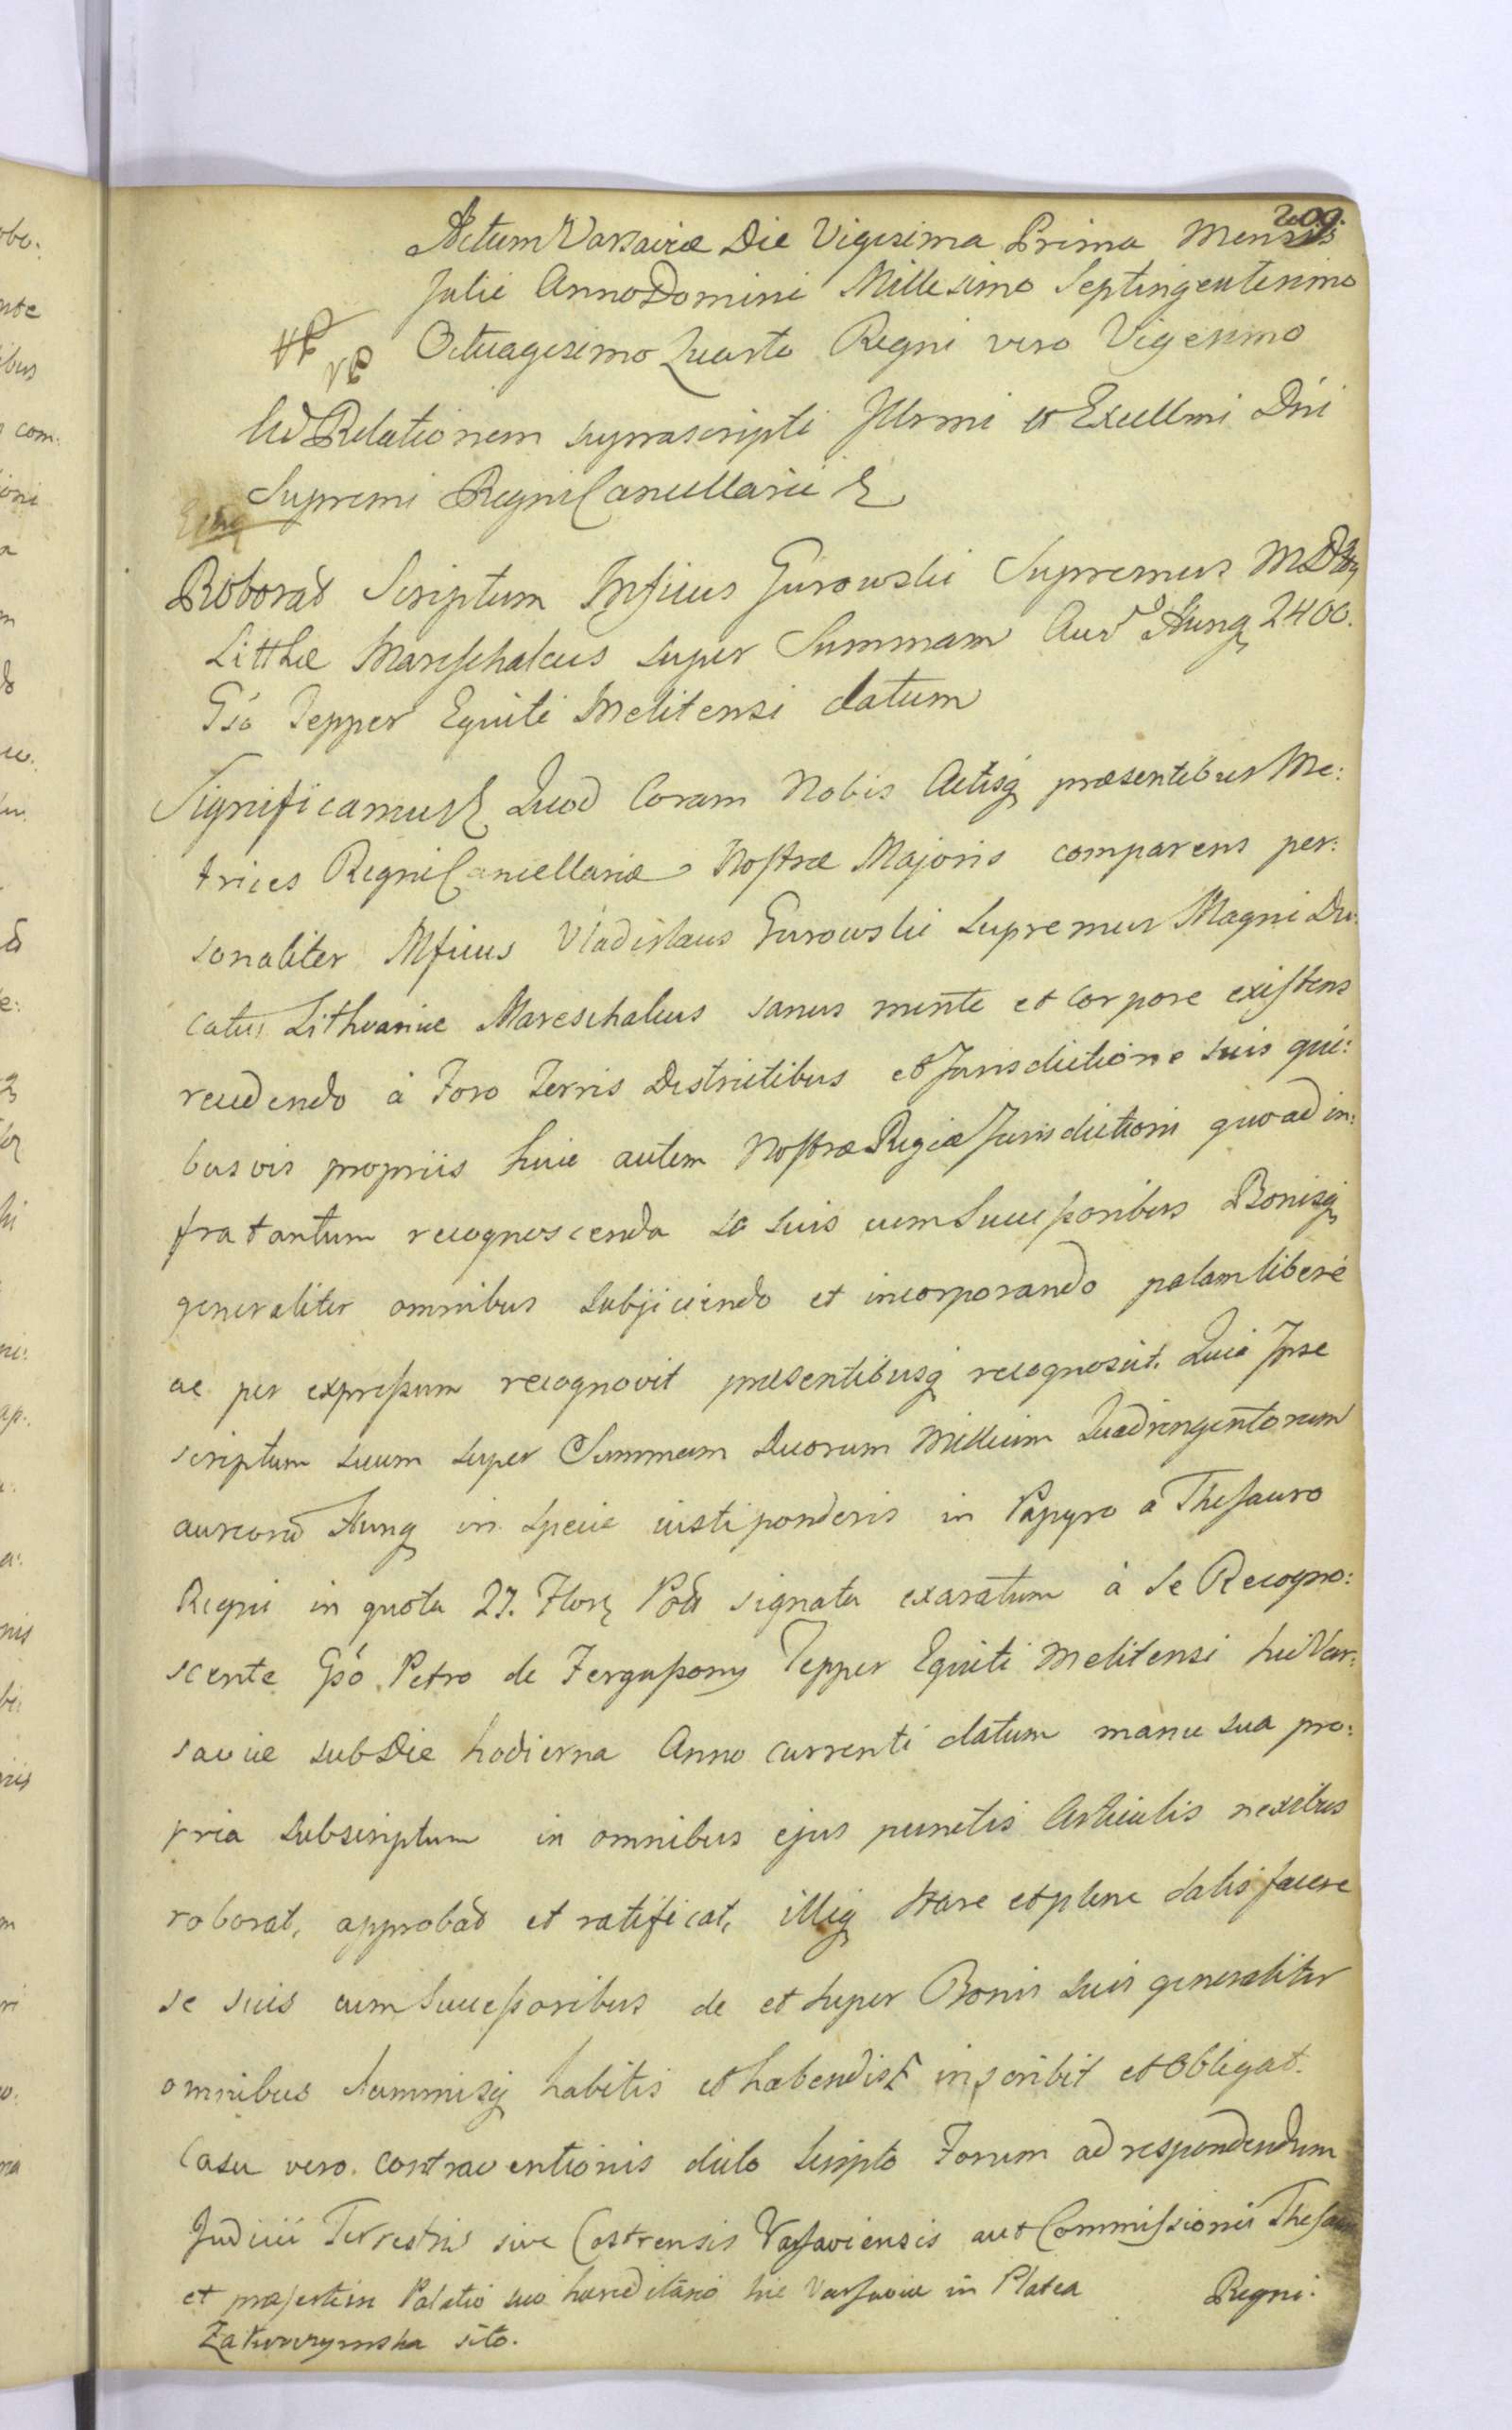 209.
Actum Varsaviæ Die Vigesima Prima Mensis
Julii Anno Domini Millesimo Septingentesimo
Octuagesimo Quarto Regni vero Vigesimo
Ad Relationem suprascripti Illrmi et Excellmi Dni
Supremi Regni Cancellarii
Roborat Scriptum Mficus Gurowski Supremus M D
Litthæ Mareschalcus super Summam Aur Hung 2400.
Gso Tepper Equiti Melitensi datum
Significamus Quod Coram Nobis Actisq præsentibus Me:
trices Regni Cancellariæ Nostræ Majoris comparens per:
sonaliter Mficus Vladislaus Gurowski Supremus Magni Du:
catus Lithvaniæ Mareschalcus sanus mente et Corpore existens
recedendo à Foro Terris Districtibus et Jurisdictione suis qui:
busvis propriis huic autem Nostræ Regiæ Jurisdictioni quoad in:
fra tantum recognoscenda se suis cum Successoribus Bonisq
generaliter omnibus subjiciendo et incorporando palam liberé
ac per expressum recognovit præsentibusq recognoscit. Quia Ipse
scriptum suum super Summam Duorum Millium Quadringentorum
aureord Hung in specie iusti ponderis in Papyro a Thesauro
Regni in quota 27. Flor Pol signata exaratum à se Recogno:
scente Gso Petro de Fergussony Tepper Equiti Melitensi hic Var:
saviæ sub Die hodierna Anno currenti datum manu sua pro:
pria subscriptum in omnibus ejus punctis Articulis nexibus
roborat, approbat et ratificat, illiq stare et plene satisfacere
se suis cum Successoribus de et super Bonis suis generaliter
omnibus Summisq habitis et habendis inscribit et Obligat.
Casu vero contraventionis dicto Scripto Forum ad respondendum
Judicii Terrestris sive Castrensis Varsaviensis aut Commissionis Thesauri
et præsertim Palatio suo hæreditario hic Varsaviæ in Platea
Zakroczymska sito.
Regni: